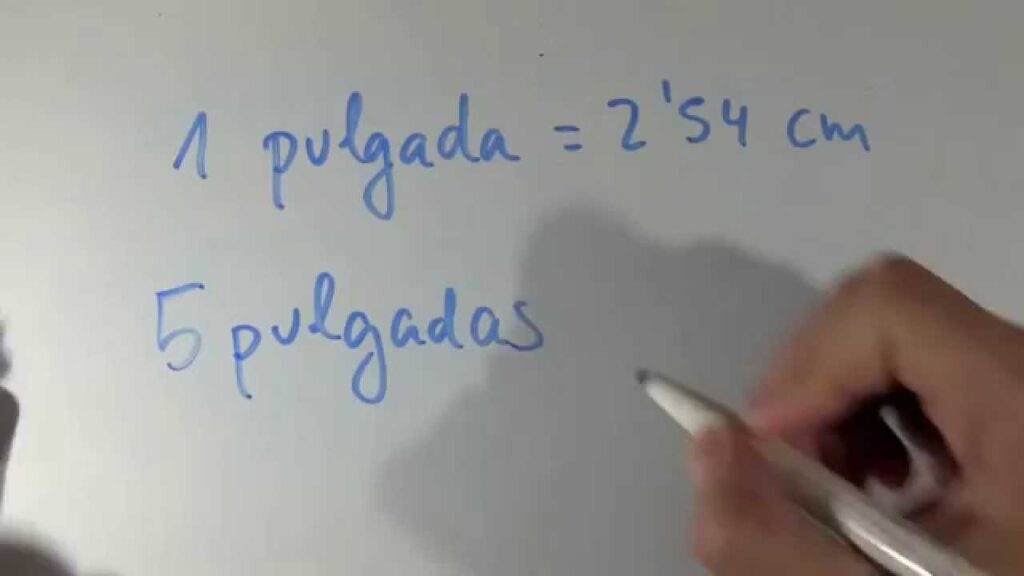 1 pulgada = 2'54 cm
5 pulgadas